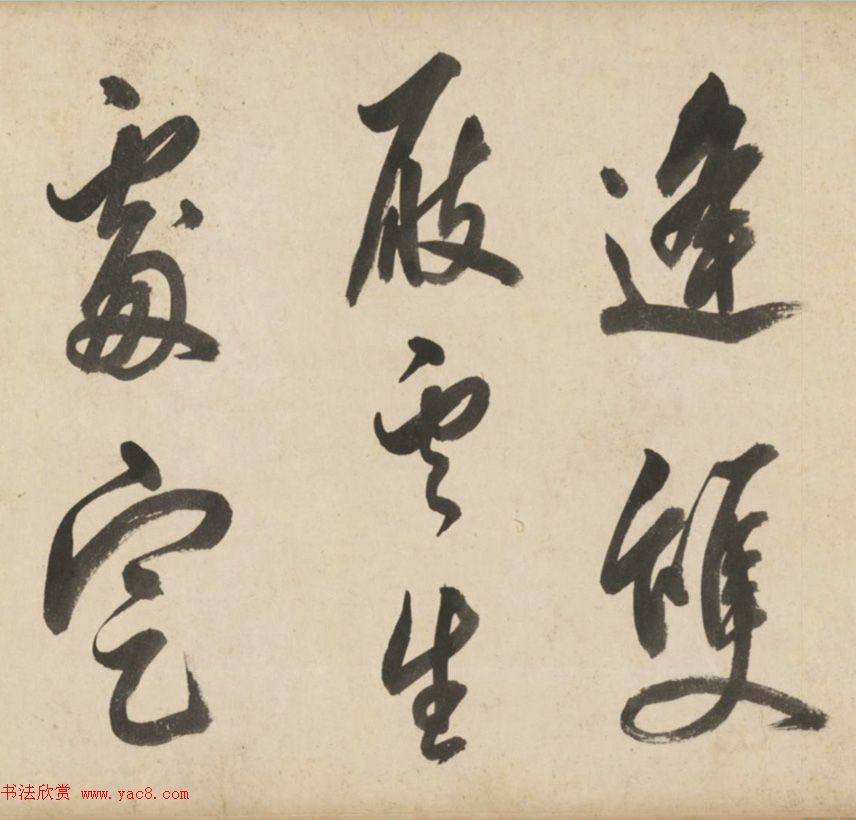 逢雙
屐雲生
處定
书法欣赏 www.yac8.com